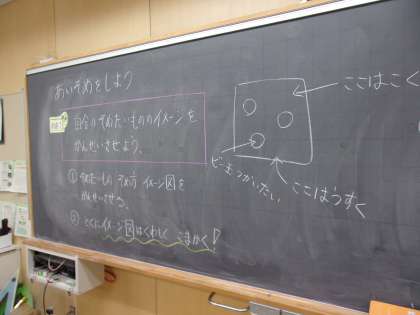 あいぞめをしよう
自分のそめたいもののイメージを
かんせいさせよう。
① そめたいもの そめ方 イメージ図を
かんせいさせる。
② とくにイメージ図はくわしく こまかく!
ここはこく
ビー玉つかいたい
ここはうすく